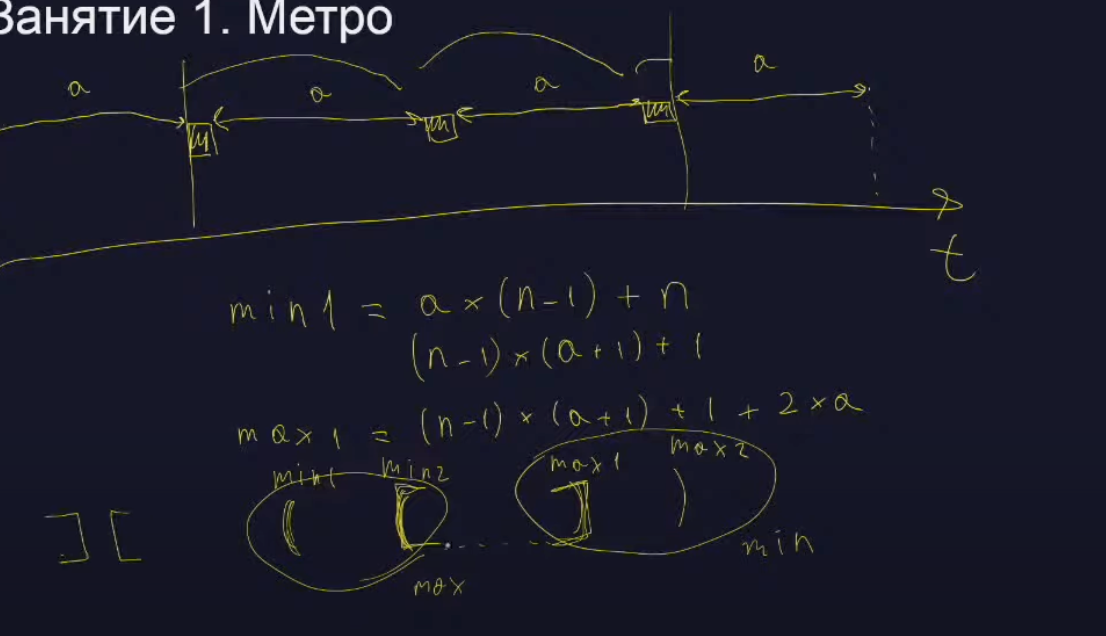 Занятие 1. Метро
a a a a
t
min1 = a × (n-1) + n
(n-1) × (a+1) + 1
max1 = (n-1) × (a+1) + 1 + 2 × a
min1 min2 max1 max2
] [ ( ( ] )
max min